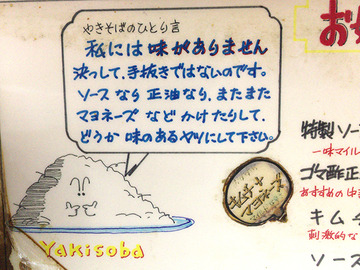 やきそばのひとり言
私には味がありません
決っして、手抜きではないのです。
ソースなら正油なり、またまた
マヨネーズなどかけたりして、
どうか味のあるヤツにして下さい。
Yakisoba
キムチと
マヨネーズ
お
特製ソー
一味マイル
ゴマ酢正
おすすめの中ま
キムチ
刺激的な
ソース